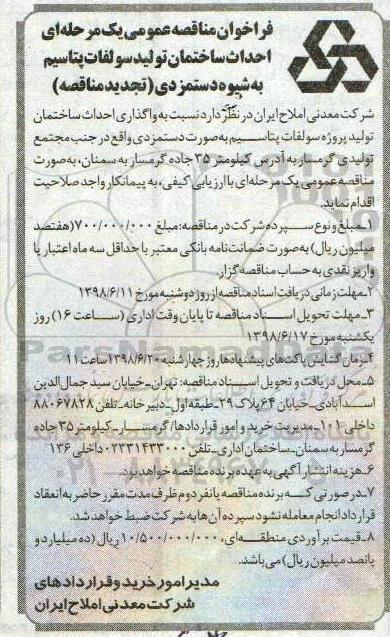 فراخوان مناقصه عمومی یک مرحله‌ای
احداث ساختمان تولید سولفات پتاسیم
به شیوه دستمزدی (تجدید مناقصه)
شرکت معدنی املاح ایران در نظر دارد نسبت به واگذاری احداث ساختمان
تولید پروژه سولفات پتاسیم به صورت دستمزدی واقع در جنب مجتمع
تولیدی گرمسار به آدرس کیلومتر ۳۵ جاده گرمسار به سمنان، به صورت
مناقصه عمومی یک مرحله‌ای با ارزیابی کیفی، به پیمانکار واجد صلاحیت
اقدام نماید.
۱ـ مبلغ و نوع سپرده شرکت در مناقصه: مبلغ ۷۰۰/۰۰۰/۰۰۰ (هفتصد
میلیون ریال) به صورت ضمانت‌نامه بانکی معتبر با حداقل سه ماه اعتبار یا
واریز نقدی به حساب مناقصه گزار.
۲ـ مهلت زمانی دریافت اسناد مناقصه از روز دوشنبه مورخ ۱۳۹۸/۶/۱۱
۳ـ مهلت تحویل اسناد مناقصه تا پایان وقت اداری (ساعت ۱۶) روز
یکشنبه مورخ ۱۳۹۸/۶/۱۷
۴ـ زمان گشایش پاکت‌های پیشنهادها روز چهارشنبه ۱۳۹۸/۶/۲۰ ساعت ۱۱
۵ـ محل دریافت و تحویل اسناد مناقصه: تهران ـ خیابان سید جمال‌الدین
اسدآبادی ـ خیابان ۶۴ پلاک ۲۹ ـ طبقه اول ـ دبیرخانه ـ تلفن ۸۸۰۶۷۸۲۸
داخلی ۱۰۱ ـ مدیریت خرید و امور قراردادها / گرمسار ـ کیلومتر ۳۵ جاده
گرمسار به سمنان ـ ساختمان اداری ـ تلفن ۰۲۳۳۱۴۳۳۰۰۰ داخلی ۱۳۶
۶ـ هزینه انتشار آگهی به عهده برنده مناقصه خواهد بود.
۷ـ در صورتی که برنده مناقصه یا نفر دوم ظرف مدت مقرر حاضر به انعقاد
قرارداد انجام معامله نشود سپرده آن‌ها به شرکت ضبط خواهد شد.
۸ـ قیمت برآوردی منطقه‌ای، ۱۰/۵۰۰/۰۰۰/۰۰۰ ریال (ده میلیارد و
پانصد میلیون ریال) می‌باشد.
مدیر امور خرید و قراردادهای
شرکت معدنی املاح ایران